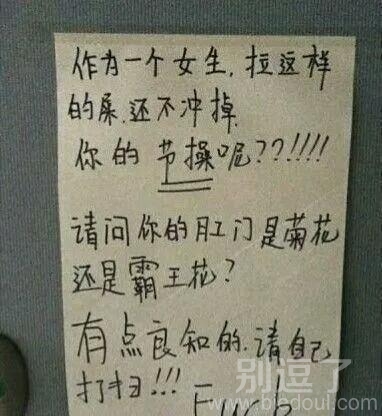 作为一个女生,拉这样
的屎,还不冲掉,
你的节操呢??!!!!
请问你的肛门是菊花
还是霸王花?
有点良知的,请自己
打扫!!!
别逗了
www.biedoul.com